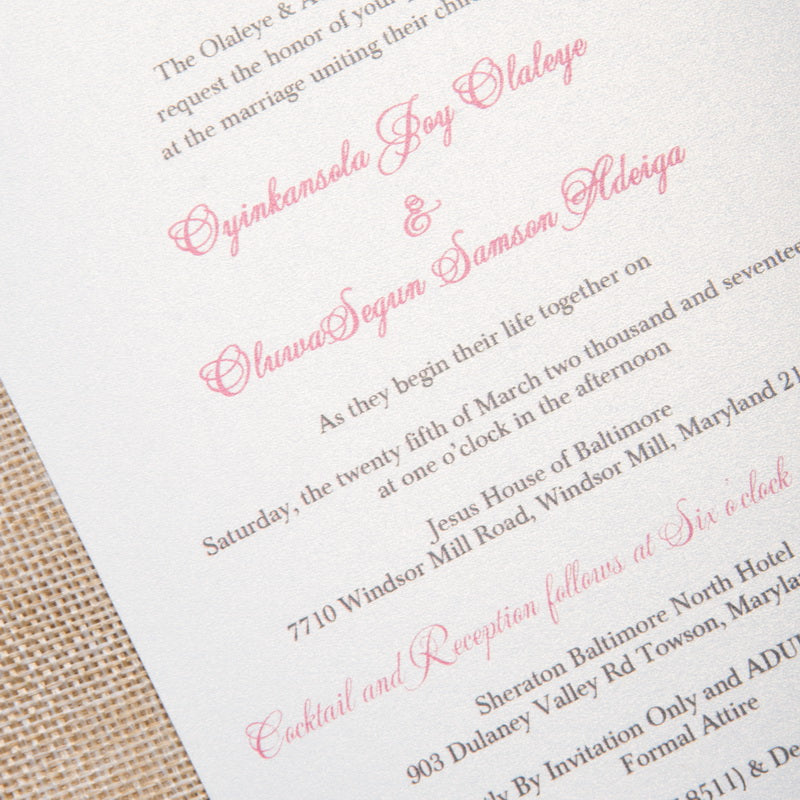 The Olaleye &
request the honor of your
at the marriage uniting their
Oyinkansola Joy Olaleye
&
OluwaSegun Samson Adeiga
As they begin their life together on
Saturday, the twenty fifth of March two thousand and seventee
at one o'clock in the afternoon
Jesus House of Baltimore
7710 Windsor Mill Road, Windsor Mill, Maryland 21
Cocktail and Reception follows at Six o'clock
Sheraton Baltimore North Hotel
903 Dulaney Valley Rd Towson, Maryla
By Invitation Only and ADU
Formal Attire
8511) & De